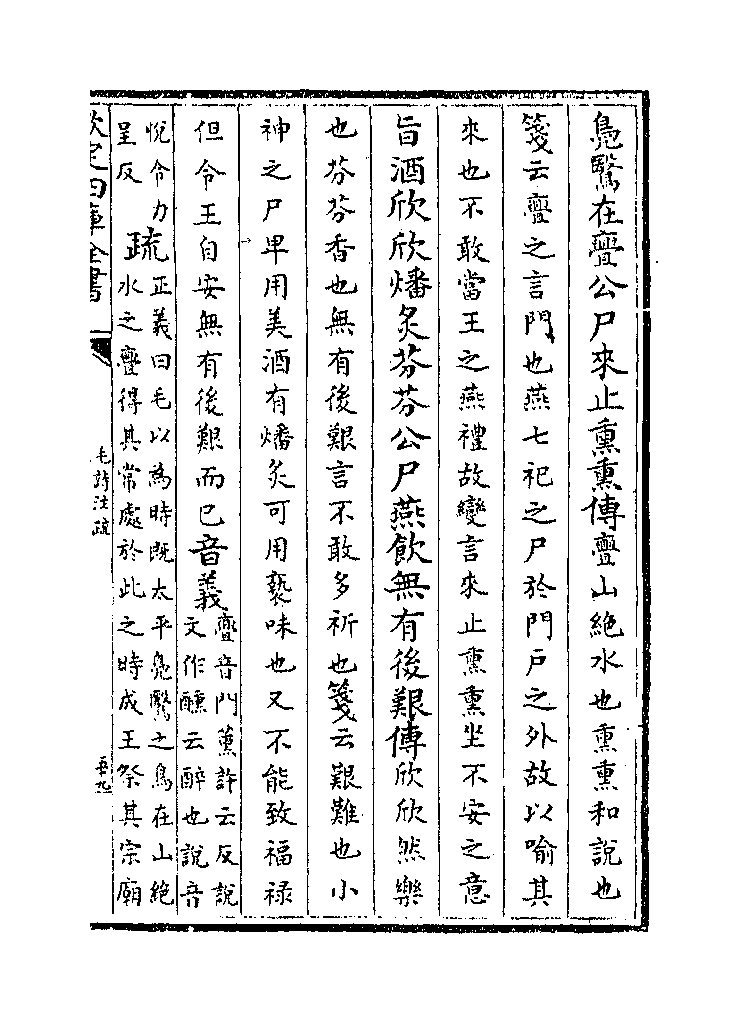 鳧鷖在亹公尸來止熏熏傳亹山絶水也熏熏和說也
箋云亹之言門也燕七祀之尸於門戶之外故以喻其
來也不敢當王之燕禮故變言來止熏熏坐不安之意
旨酒欣欣燔炙芬芬公尸燕飲無有後艱傳欣欣然樂
也芬芬香也無有後艱言不敢多祈也箋云艱難也小
神之尸卑用美酒有燔炙可用䙝味也又不能致福禄
但令王自安無有後艱而已音義亹音門薰許云反說
文作醺云醉也說音
悅令力
呈反疏正義曰毛以為時既太平鳧鷖之鳥在山絶
水之亹得其常處於此之時成王祭其宗廟
欽定四庫全書
毛詩注疏